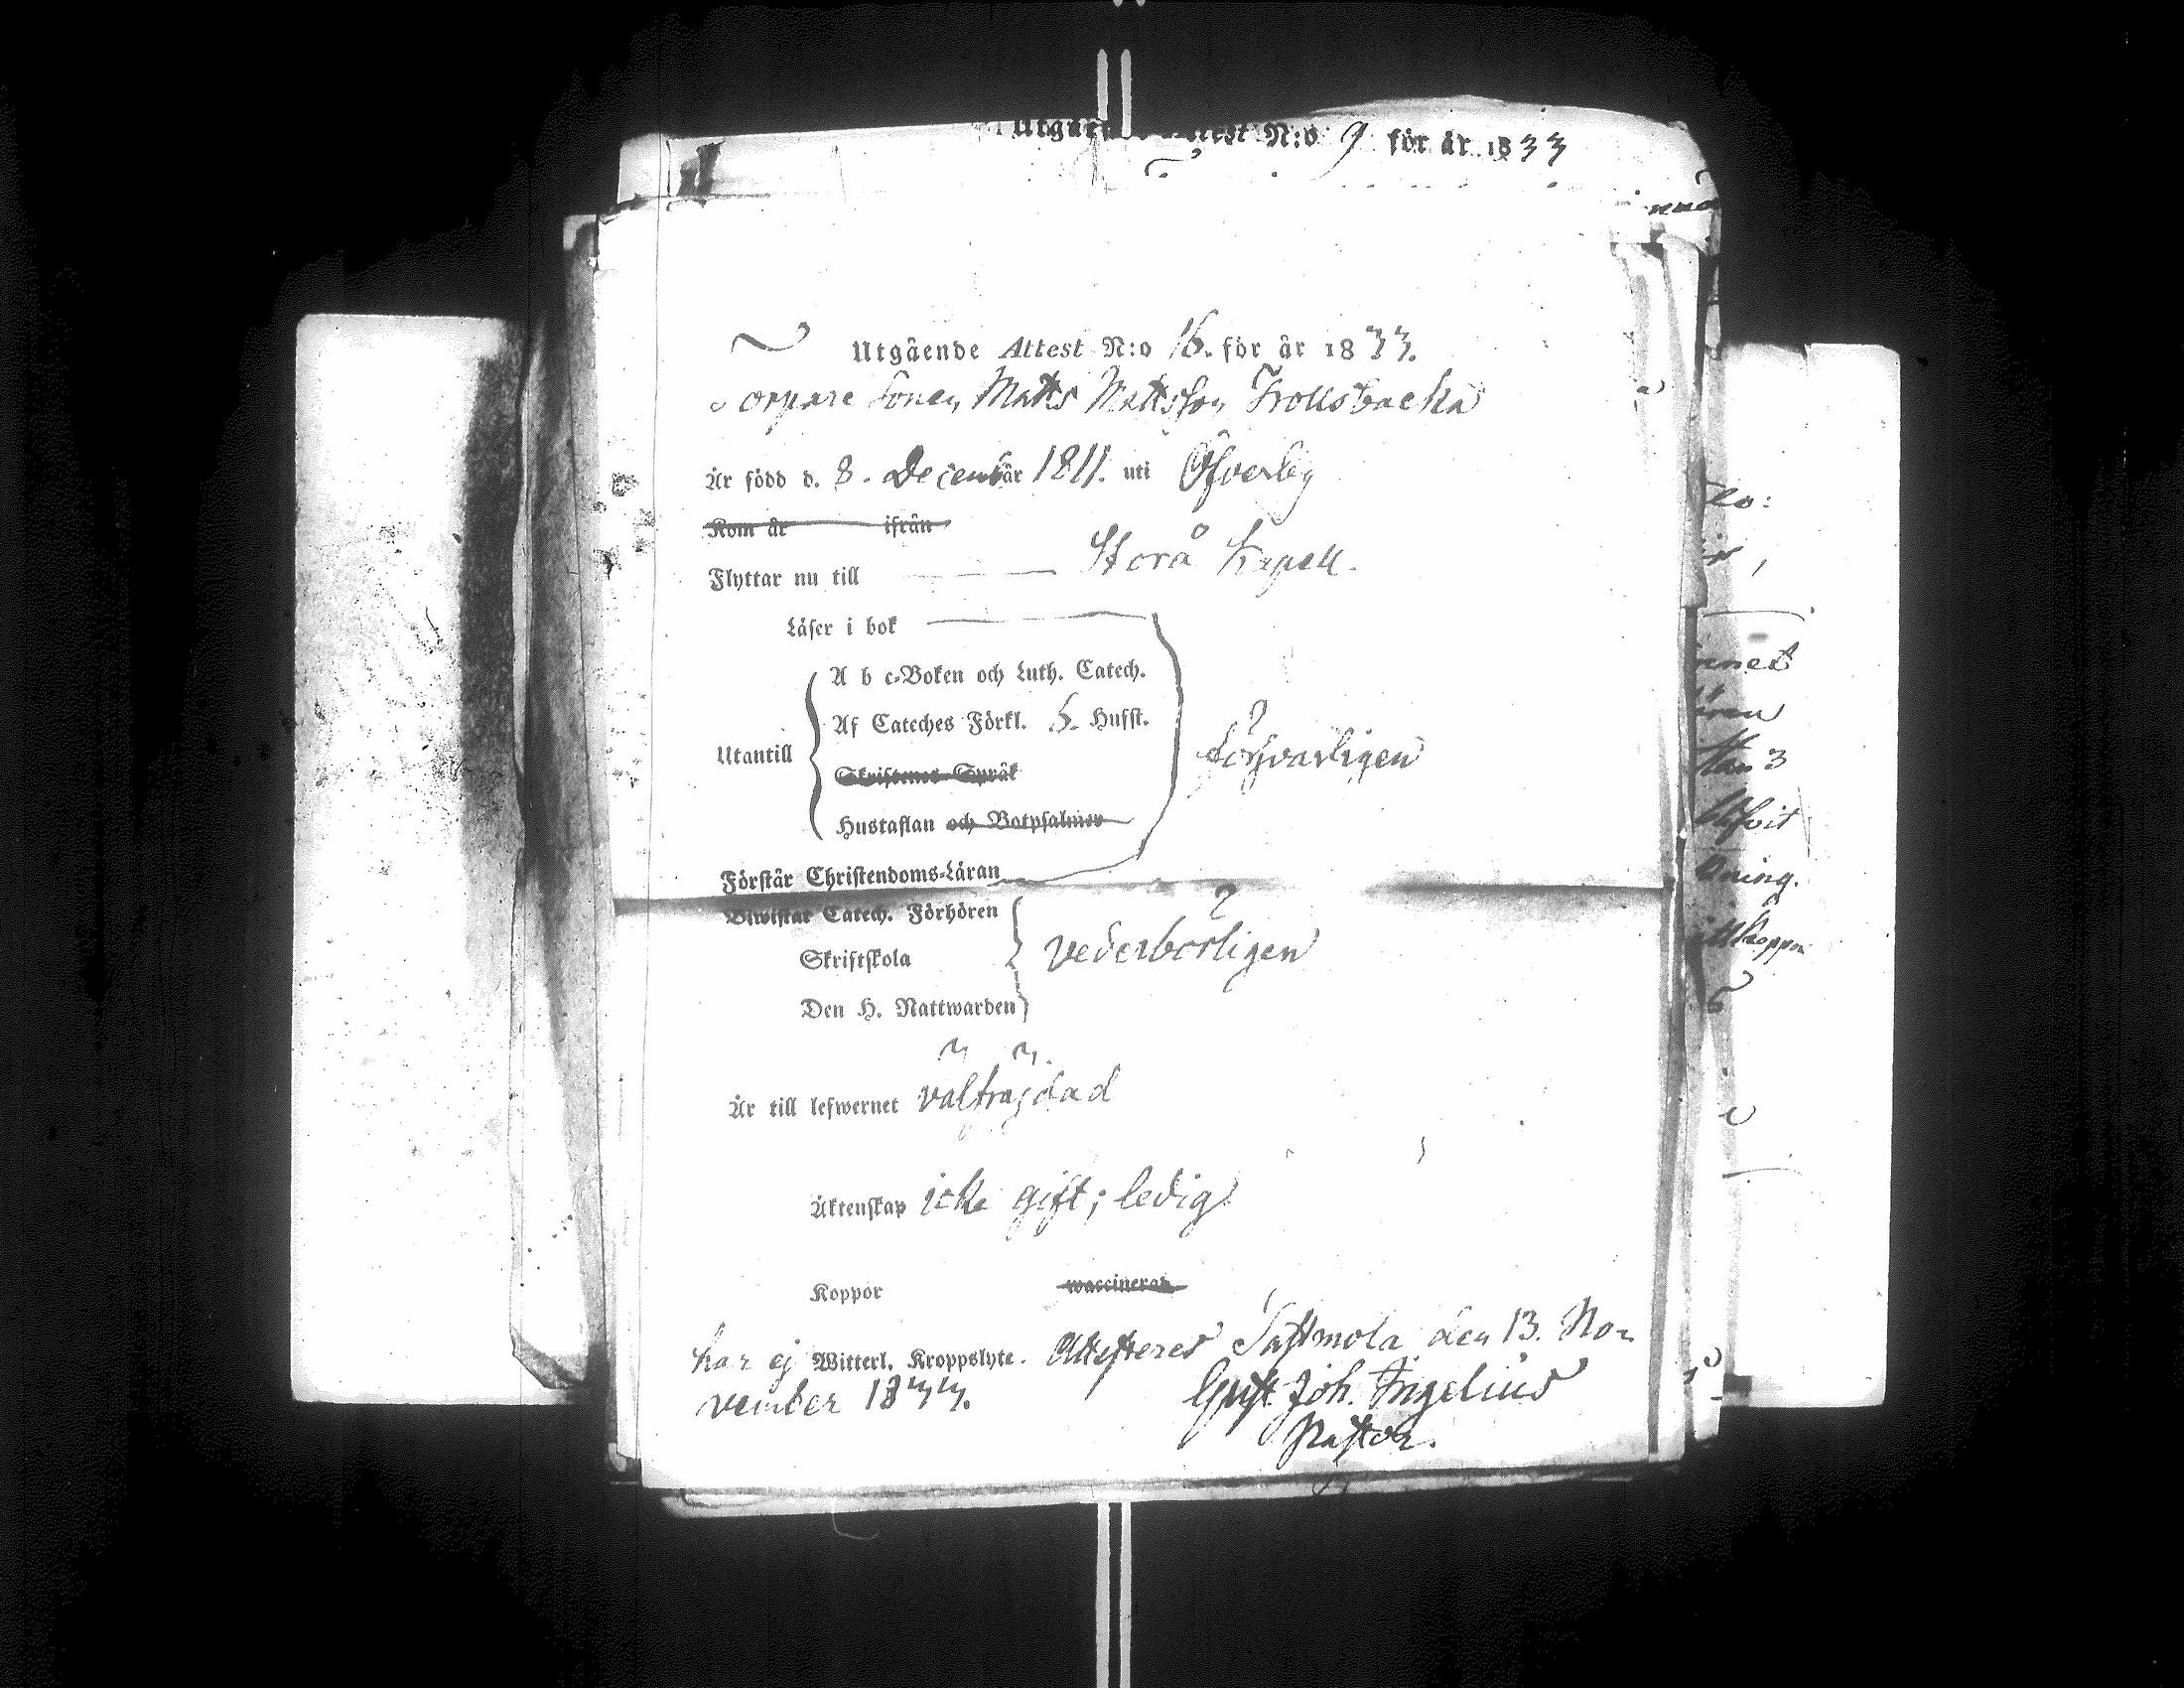 N:o 9 för år 1833
Utgående Attest N:o 16. för år 1833.
Sonen Matts Mattsson Trollsbacka
Är född d. 8. Decemb år 1811. uti Öfverby
Kom år ifrån
Flyttar nu till Storå Kapell.
Läser i bok
A b c-Boken och Luth. Catech.
Af Cateches Förkl. H. Husst.
Utantill försvarligen
Skriftenes Språk
Hustaflan och Botpsalmer
Förstår Christendoms-Läran
Biwistat Catech. Förhören
Skriftskola vederbörligen
Den H. Nattwarden
Är till lefwernet välfräjdad
Äktenskap icke gift; ledig
Koppor waccinerat
har ej Witterl. Kroppslyte. Attesteres Sastmola den 13. No-
vember 1833. Gust. Joh. Ingelius
Pastor.